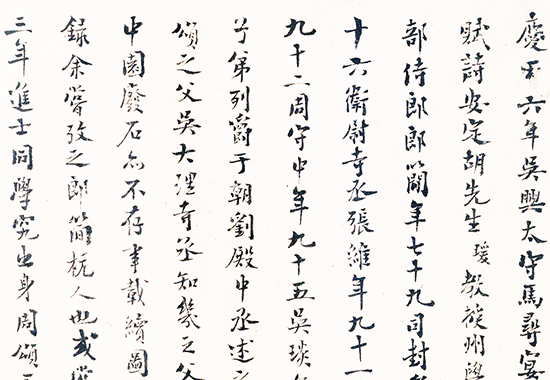 慶曆六年吳興太守馬尋宴
賦詩安定胡先生瑗教授州學
部侍郎郎簡年七十九司封
十六衛尉寺丞張維年九十一
九十二周守中年九十五吳琰
子弟列爵于朝劉殿中丞述之
頌之父吳大理寺丞知幾之父
中園廢石亦不存事載續圖
録余嘗攷之郎簡杭人也或
三年進士同學究出身周頌